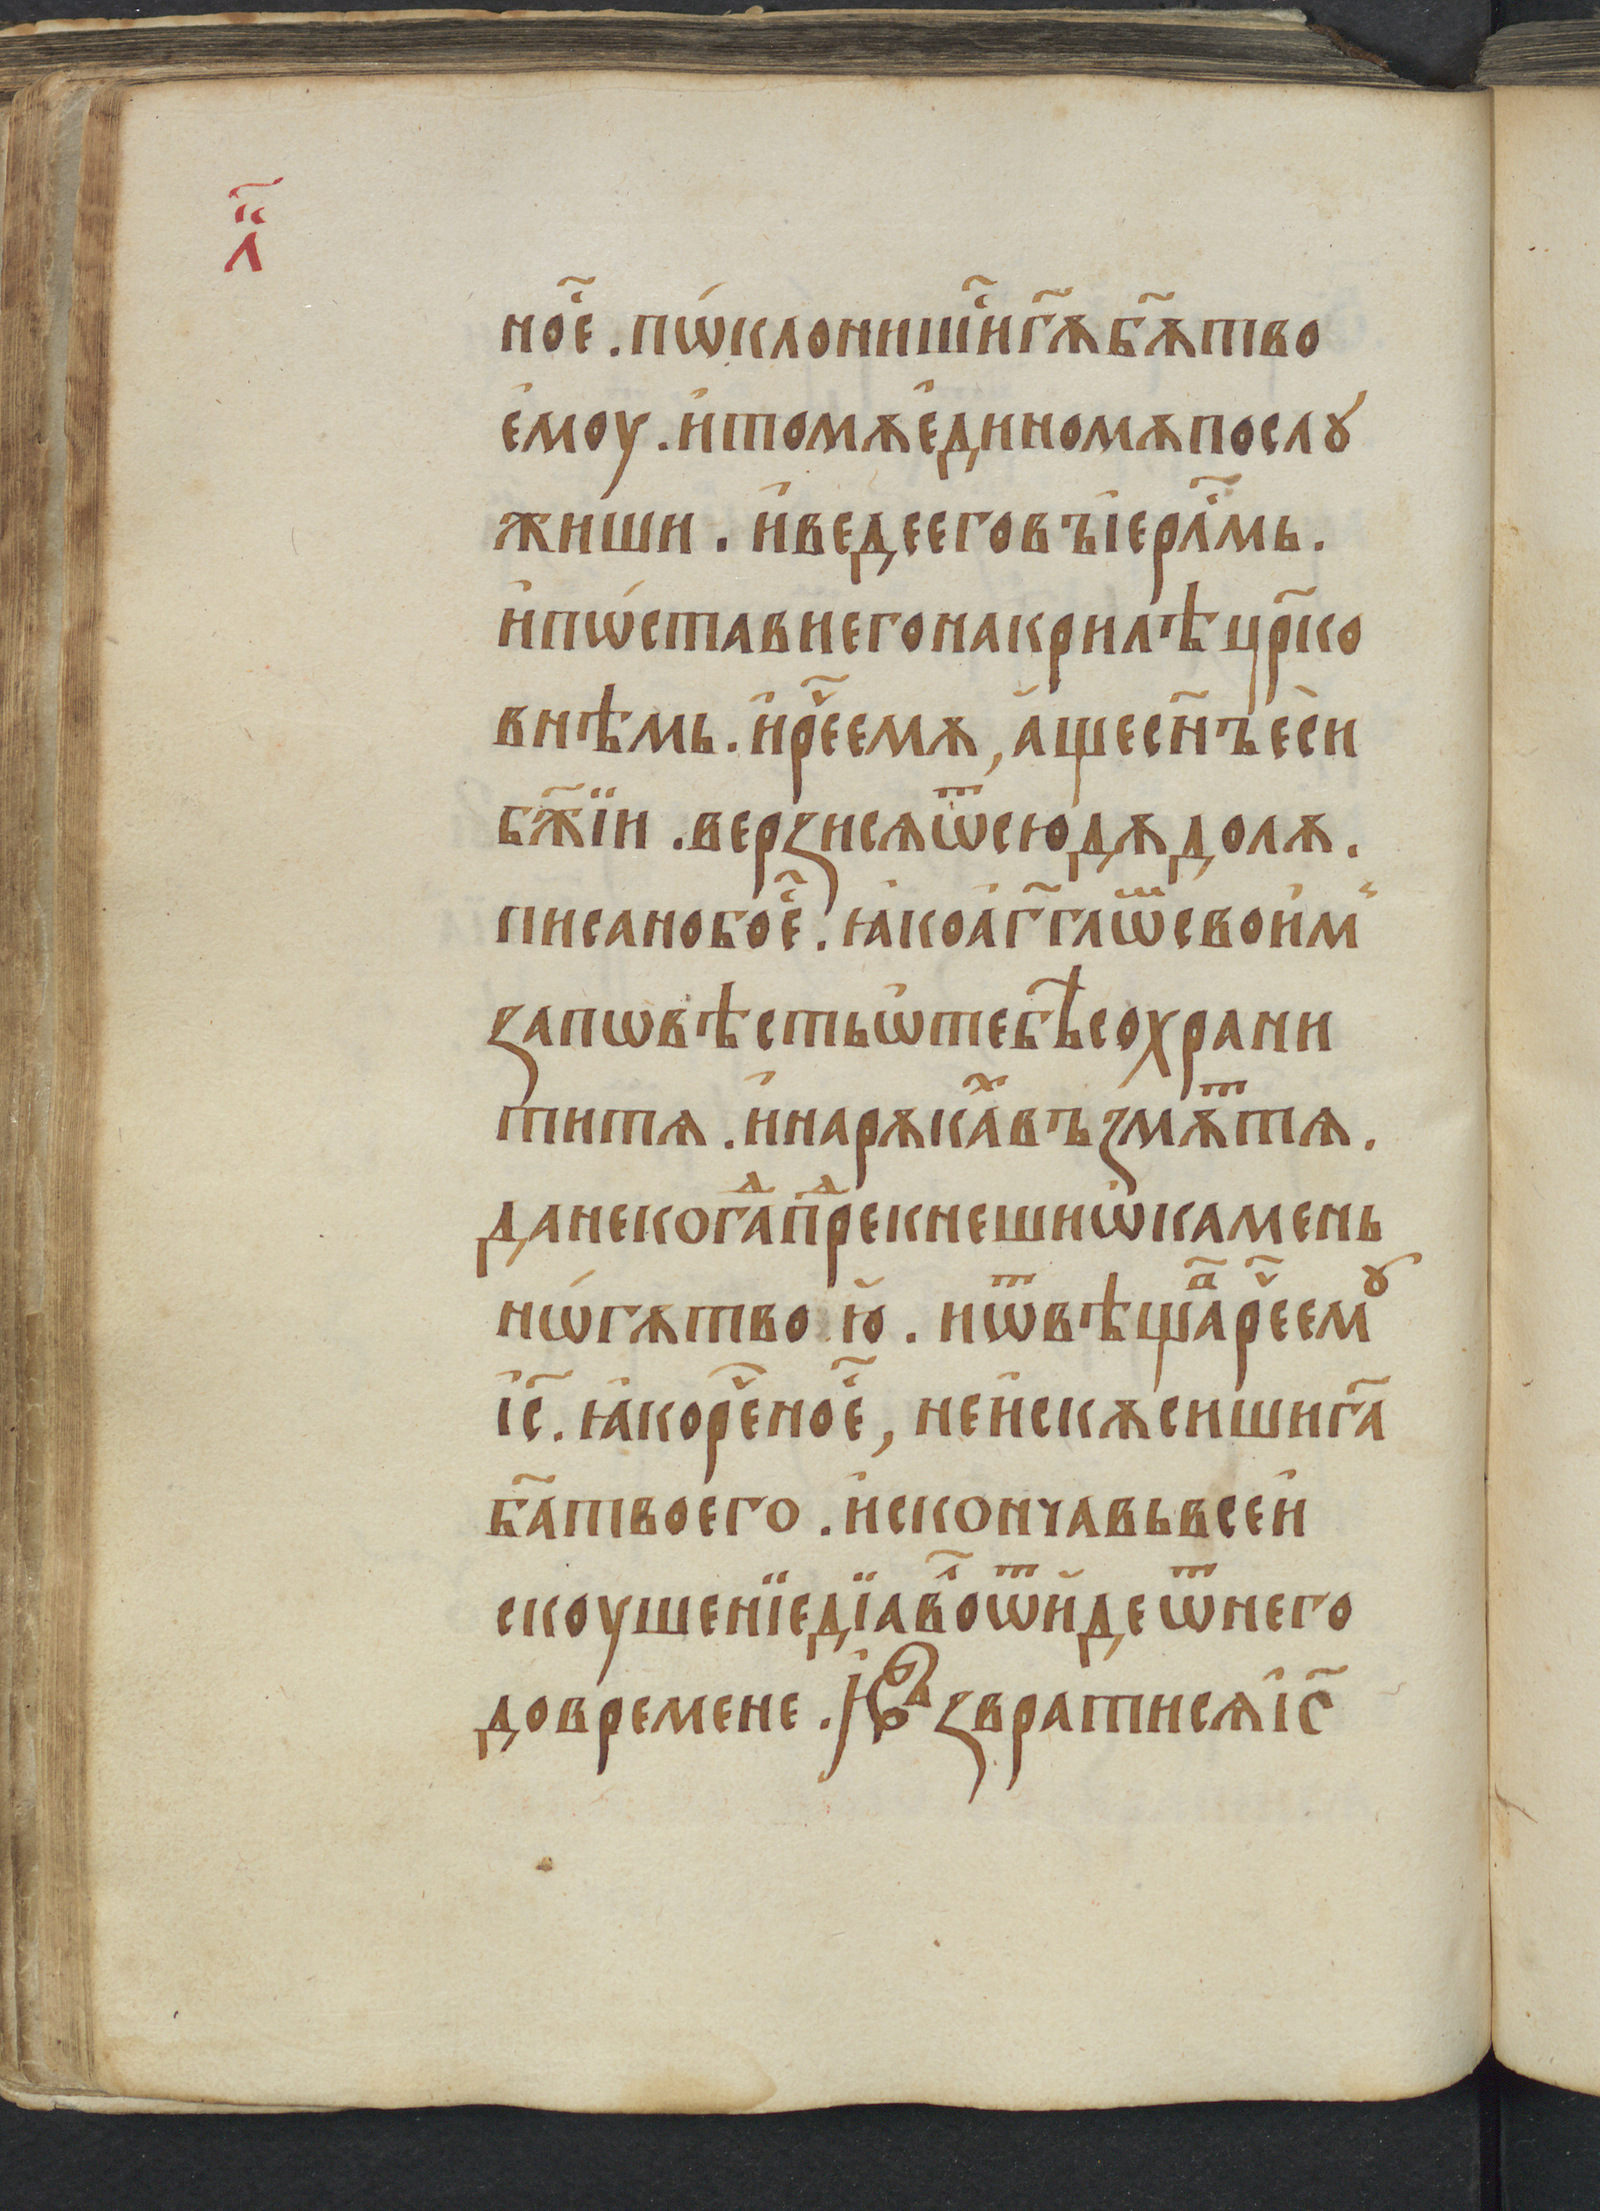 л҃і
но́е҃ . пѡ́клонишиⷭ҇ г҃ѫ б҃ѫ тво
е҆моу . и҆ томѫ е҆диномѫ послꙋ
жиши . и҆ веде его въ і҆ерⷭ҇лмь .
и҆ пѡ́стави его на крилѣ цр҃ко
внѣмь . и҆ рⷱ҇е емѫ , а҆ще сн҃ъ е҆си
бж҃їи . верзисѧ ѿ сюдѫ долѫ .
писано бо еⷭ҇ . ꙗ҆ко а҆гг҃лѡⷨ свои҆м
заповѣсть ѡ҆ тебѣ сохрани
ти тѧ . и҆ на рѫкаⷯ въꙁмѫⷮ тѧ .
да не когаⷣ преⷣкнеши ѡ҆ камень
нѡ́гѫ твою҆ . и ѿвѣщаⷡ рⷱ҇е емꙋ
і҆с҃ . ꙗ҆ко рⷱ҇ено еⷭ҇ , не и҆скѫсиши г҃а
б҃а твоего . и҆ скончавь все и҆
скоушенїе дїавоⷧ ѿи҆де ѿ него
до времене . И҆ възвратисѧ і҆с҃